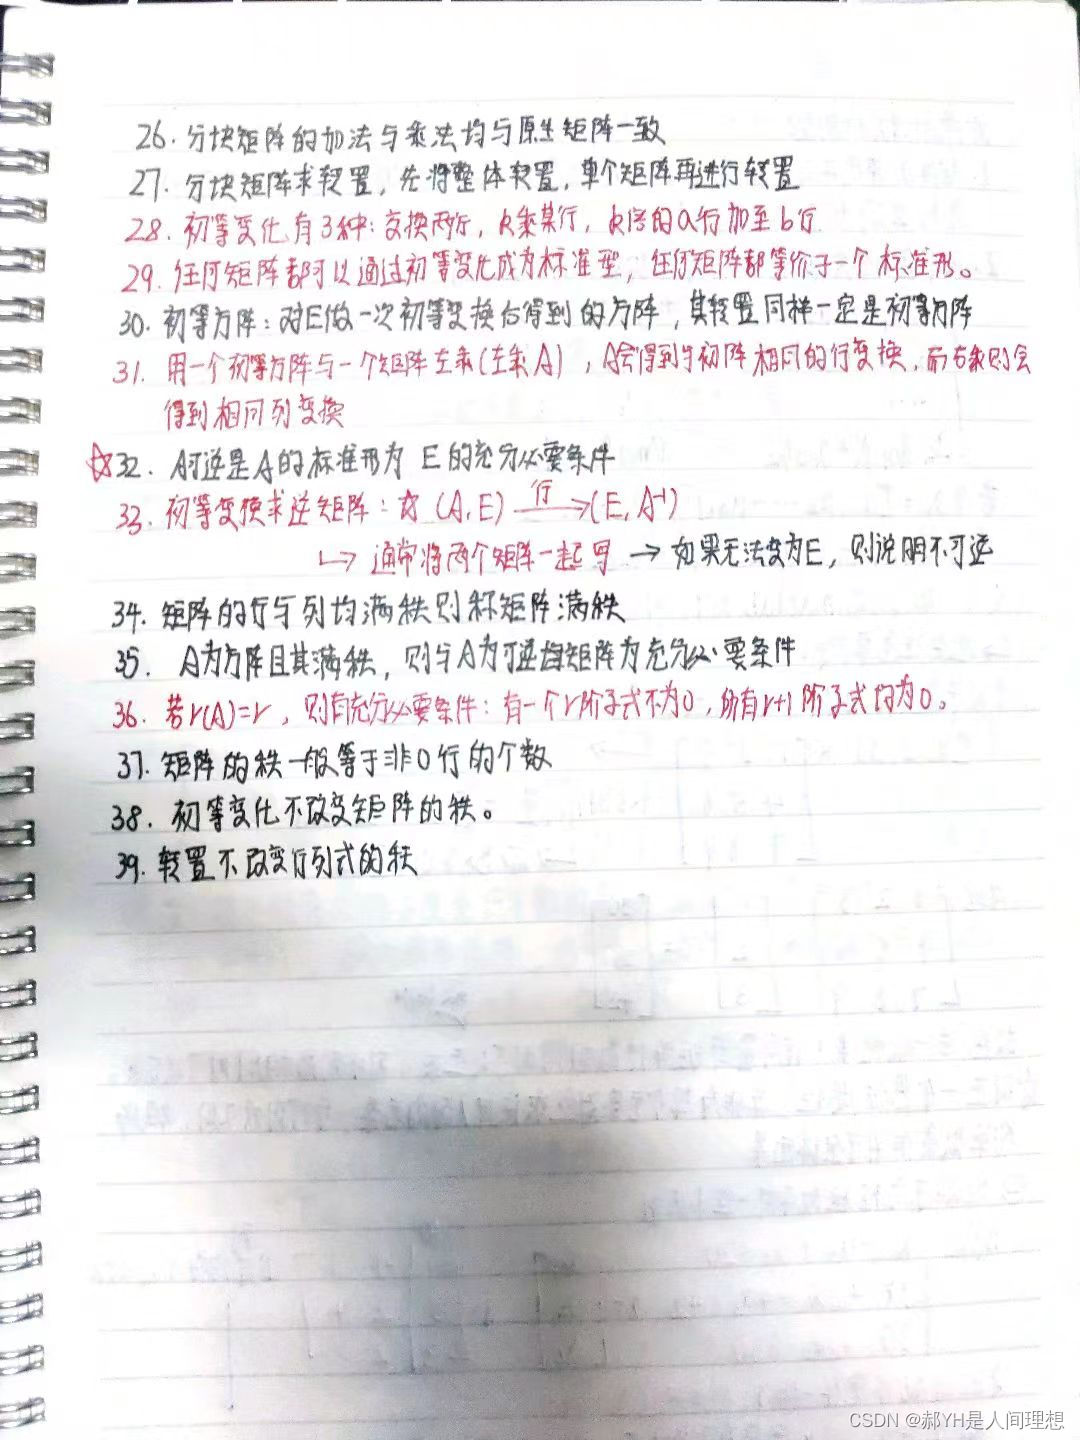 26. 分块矩阵的加法与乘法均与原生矩阵一致
27. 分块矩阵求转置，先将整体转置，单个矩阵再进行转置
28. 初等变化有3种：交换两行，k乘某行，k倍的a行加至b行
29. 任何矩阵都可以通过初等变化成为标准型，任何矩阵都等价于一个标准形。
30. 初等方阵：对E做一次初等变换后得到的方阵，其转置同样一定是初等方阵
31. 用一个初等方阵与一个矩阵左乘(左乘A)，A会得到与初阵相同的行变换，而右乘则会
得到相同列变换
☆32. A可逆是A的标准形为E的充分必要条件
33. 初等变换求逆矩阵：☆ (A, E) 行→ (E, A⁻¹)
↳ 通常将两个矩阵一起写 → 如果无法变为E，则说明不可逆
34. 矩阵的行与列均满秩则称矩阵满秩
35. A为方阵且其满秩，则与A为可逆矩阵为充分必要条件
36. 若r(A)=r，则有充分必要条件：有一个r阶子式不为0，所有r+1阶子式均为0。
37. 矩阵的秩一般等于非0行的个数
38. 初等变化不改变矩阵的秩。
39. 转置不改变行列式的秩
CSDN @郝YH是人间理想